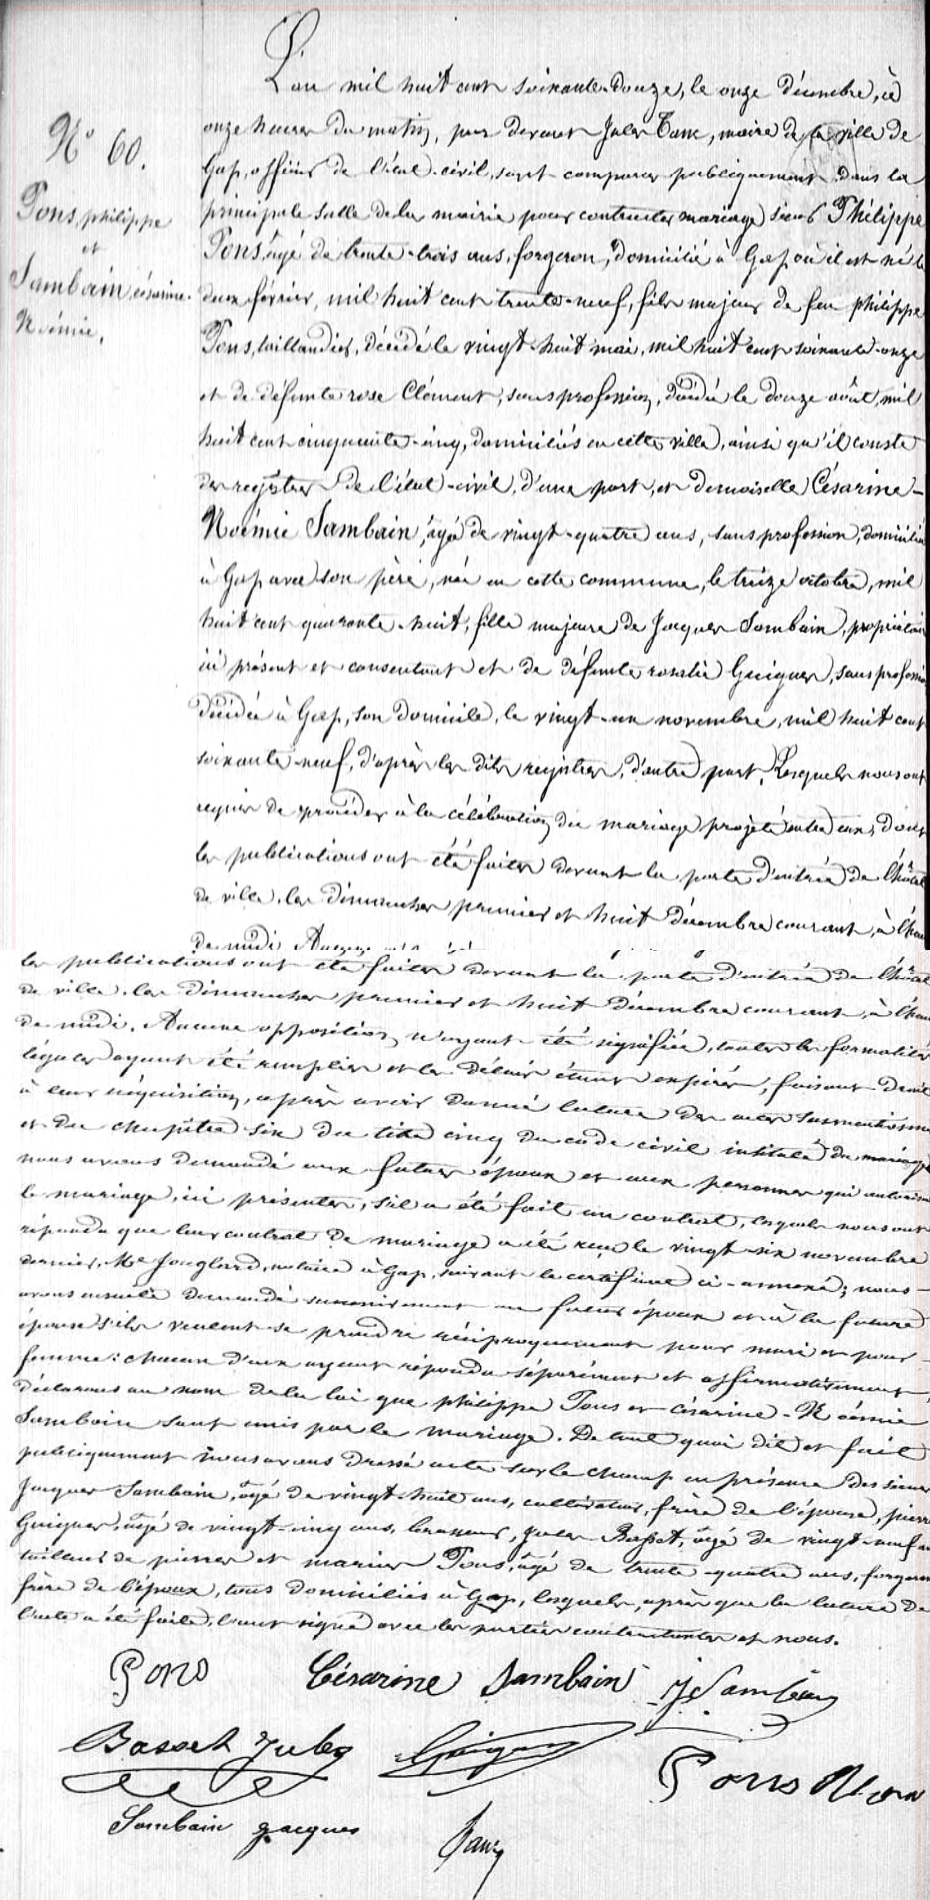 N° 60.
Pons, philippe
et
Sambain césarine-
Noémie,
L'an mil huit cent soixante-douze, le onze décembre, à
onze heures du matin, par devant Jules Tanc, maire de la ville de
Gap, officier de l'état-civil, sont comparus publiquement dans la
principale salle de la mairie pour contracter mariage, sieur Philippe
Pons, âgé de trente-trois ans, forgeron, domicilié à Gap où il est né le
deux février, mil huit cent trente-neuf, fils majeur de feu philippe
Pons, taillandier, décédé le vingt-huit mai, mil huit cent soixante-onze
et de défunte rose Clément, sans profession, décédée le douze août, mil
huit cent cinquante-cinq, domiciliés en cette ville, ainsi qu'il conste
des registres de l'état-civil, d'une part, et demoiselle Césarine-
Noémie Sambain, âgée de vingt-quatre ans, sans profession, domiciliée
à Gap avec son père, née en cette commune, le treize octobre, mil
huit cent quarante-huit, fille majeure de Jacques Sambain, propriétaire
ici présent et consentant et de défunte rosalie Guigues, sans profession
décédée à Gap, son domicile, le vingt-un novembre, mil huit cent
soixante-neuf, d'après les dits registres, d'autre part. Lesquels nous ont
requis de procéder à la célébration du mariage projeté entre eux, dont
les publications ont été faites devant la porte d'entrée de l'hôtel
de ville, les dimanches premier et huit décembre courant, à l'heure
de midi. Aucune
les publications ont été faites devant la porte d'entrée de l'hôtel
de ville, les dimanches premier et huit décembre courant, à l'heure
de midi. Aucune opposition n'ayant été signifiée, toutes les formalités
légales ayant été remplies et les délais étant expirés, faisant droit
à leur réquisition, après avoir donné lecture des actes susmentionnés
et du chapitre six du titre cinq du code civil intitulé du mariage
nous avons demandé aux futurs époux et aux personnes qui autorisent
le mariage, ici présentes, s'il a été fait un contrat, lesquels nous ont
répondu que leur contrat de mariage a été reçu le vingt-six novembre
dernier, Me Jouglard, notaire à Gap, suivant le certificat ci-annexé; nous-
avons ensuite demandé successivement au futur époux et à la future
épouse s'ils veulent se prendre réciproquement pour mari et pour-
femme: chacun d'eux ayant répondu séparément et affirmativement,
déclarons au nom de la loi que philippe Pons et césarine-Noémie
Sambain sont unis par le mariage. De tout quoi dit et fait
publiquement nous avons dressé acte sur le champ en présence des sieurs
Jacques Sambain, âgé de vingt-huit ans, cultivateur, frère de l'épouse, pierre
Guigues, âgé de vingt-cinq ans, brasseur, jules Basset, âgé de vingt-neuf ans
tailleur de pierres et marius Pons, âgé de trente-quatre ans, forgeron
frère de l'époux, tous domiciliés à Gap, lesquels, après que la lecture de
l'acte a été faite, l'ont signé avec les parties contractantes et nous.
Pons Césarine Sambain J Sambain
Basset Jules Guigues
Pons M
Sambain jacques Tanc